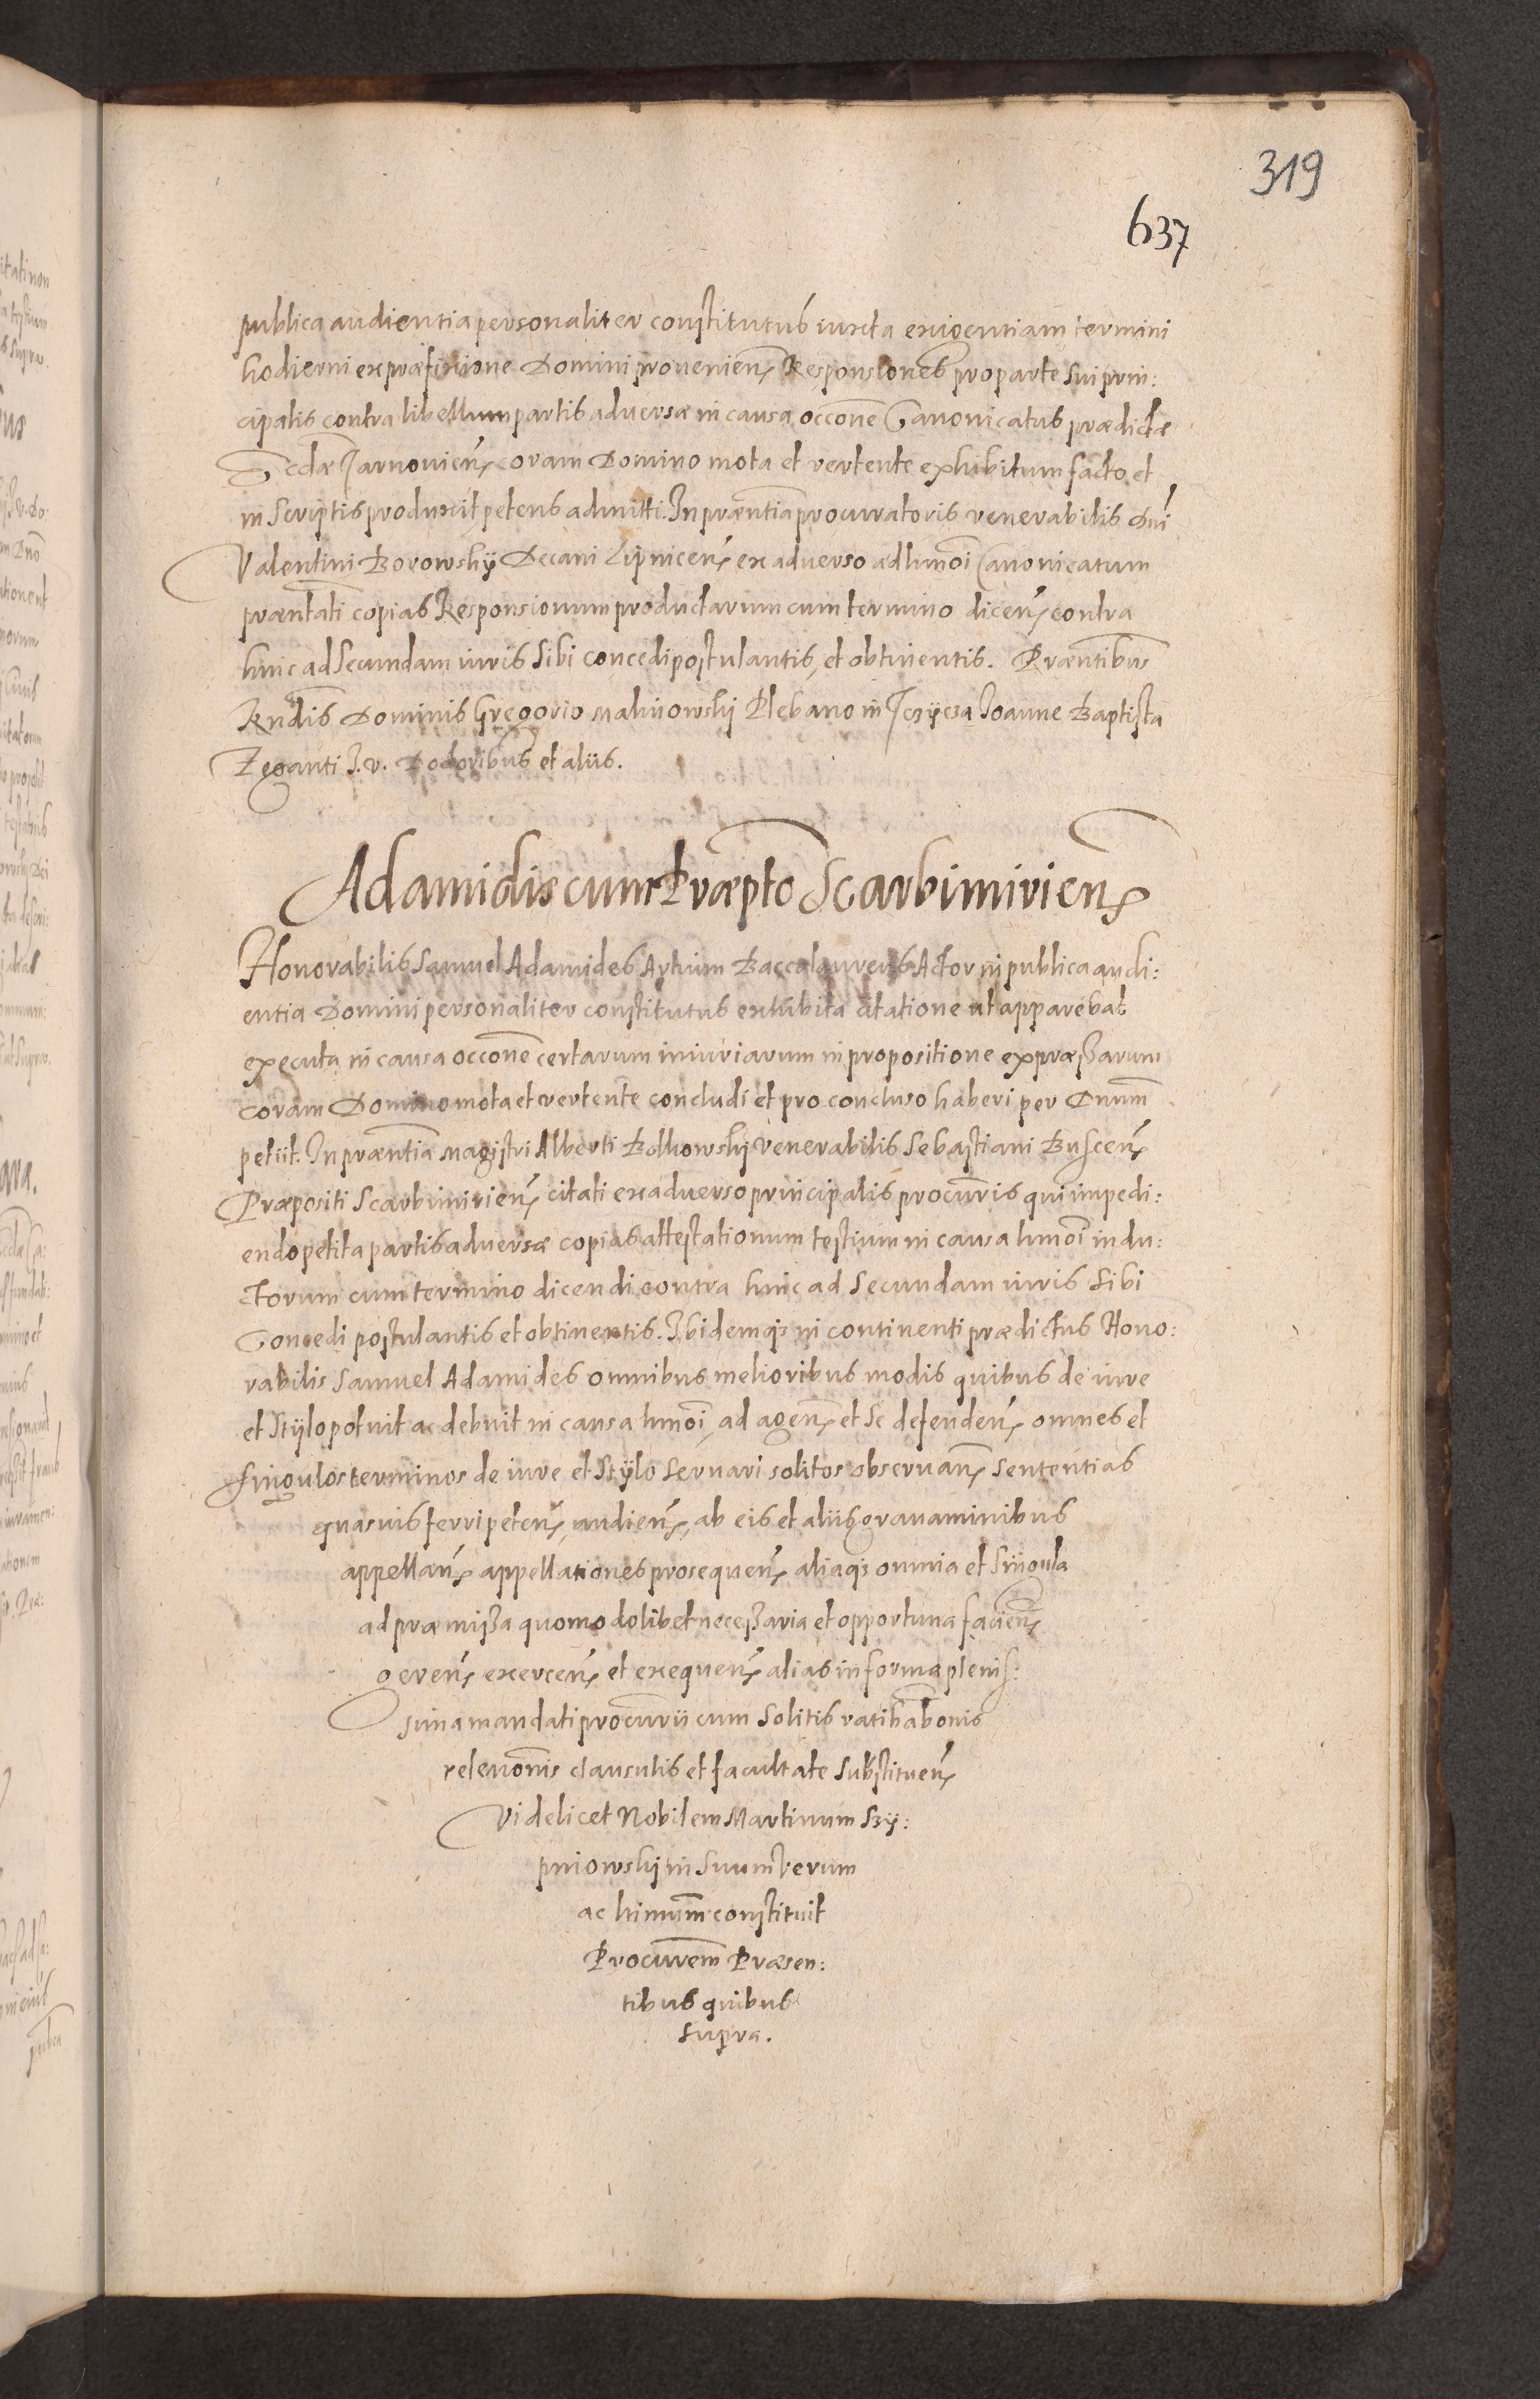 319
637
publica audientia personaliter constitutus iuxta exigentiam termini
hodierni ex præfixione Domini provenien̄ Responsiones pro parte sui prin:
cipalis contra libellum partis adversæ in causa occone Canonicatus prædictæ
Ecclæ Tarnovien̄ coram Domino mota et vertente exhibitum facto et
in scriptis produxit petens admitti. In præntia procuratoris venerabilis Dni
Valentini Borowskÿ Decani Lipnicen̄ ex adverso ad hmoi Canonicatum
præntati copias Responsionum productarum cum termino dicen̄ contra
hinc ad secundam iuris sibi concedi postulantis, et obtinentis. Præntibus
Rndis Dominis Gregorio Malinowski Plebano in Ioanne Baptista
Zeganti I. v. Doctoribus et aliis.
Adamidis cum Præpto Scarbimirien̄
Honorabilis Samuel Adamides Artium Baccalaureus Actor in publica audi:
entia Domini personaliter constitutus exhibita citatione ut apparebat
executa in causa occone certarum iniuriarum in propositione expræssarum
coram Domino mota et vertente concludi et pro concluso haberi per Dnum
petiit. In præntia Magistri Alberti venerabilis Sebastiani Buscen̄
Præpositi Scarbimirien̄ citati ex adverso principalis procuris qui impedi:
endo petita partis adversæ copias attestationum testium in causa hmoi indu:
ctorum cum termino dicendi contra hinc ad secundam iuris sibi
Concedi postulantis et obtinentis. Ibidemq; in continenti prædictus Hono:
rabilis Samuel Adamides omnibus melioribus modis quibus de iure
et stÿlo potuit ac debuit in causa hmoi, ad agen̄ et se defenden̄ omnes et
singulos terminos de iure et stÿlo servari solitos observan̄ sententias
quasvis ferri peten̄, audien̄, ab eis et aliis gravaminibus
appellan̄ appellationes prosequen̄ aliaq; omnia et singula
ad præmissa quomodolibet necessaria et opportuna facien̄
geren̄ exercen̄ et exequen̄ alias in forma plenis:
sima mandati procurii cum solitis ratihabonis
relevonis clausulis et facultate substituen̄
Videlicet Nobilem Martinum Szÿ:
pniowskÿ in suum verum
ac ltimum constituit
Procurem Præsen:
tibus quibus
supra.